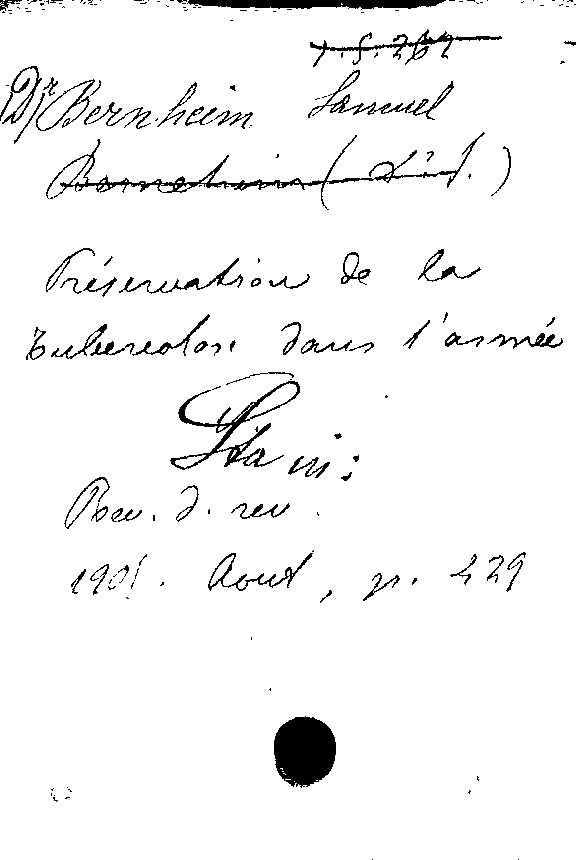 1.5.262
Dr Bernheim Samuel
Bernheim (
Préservation de la
tuberculose dans l'armée
Rev. d. rev.
1901. Aout, p. 229